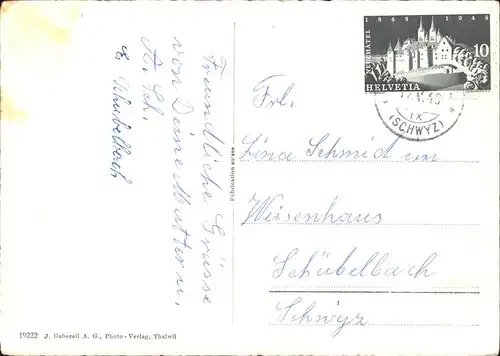 Freundliche Grüsse
von Deine Mutter u.
A. Sch.
Schübelbach
Fabrication suisse
1848 1948
NEUCHÂTEL
10
HELVETIA
(SCHWYZ)
Frl.
Lina Schmid im
Weisenhaus
Schübelbach
Schwyz
19222 J. Gaberell A. G., Photo-Verlag, Thalwil